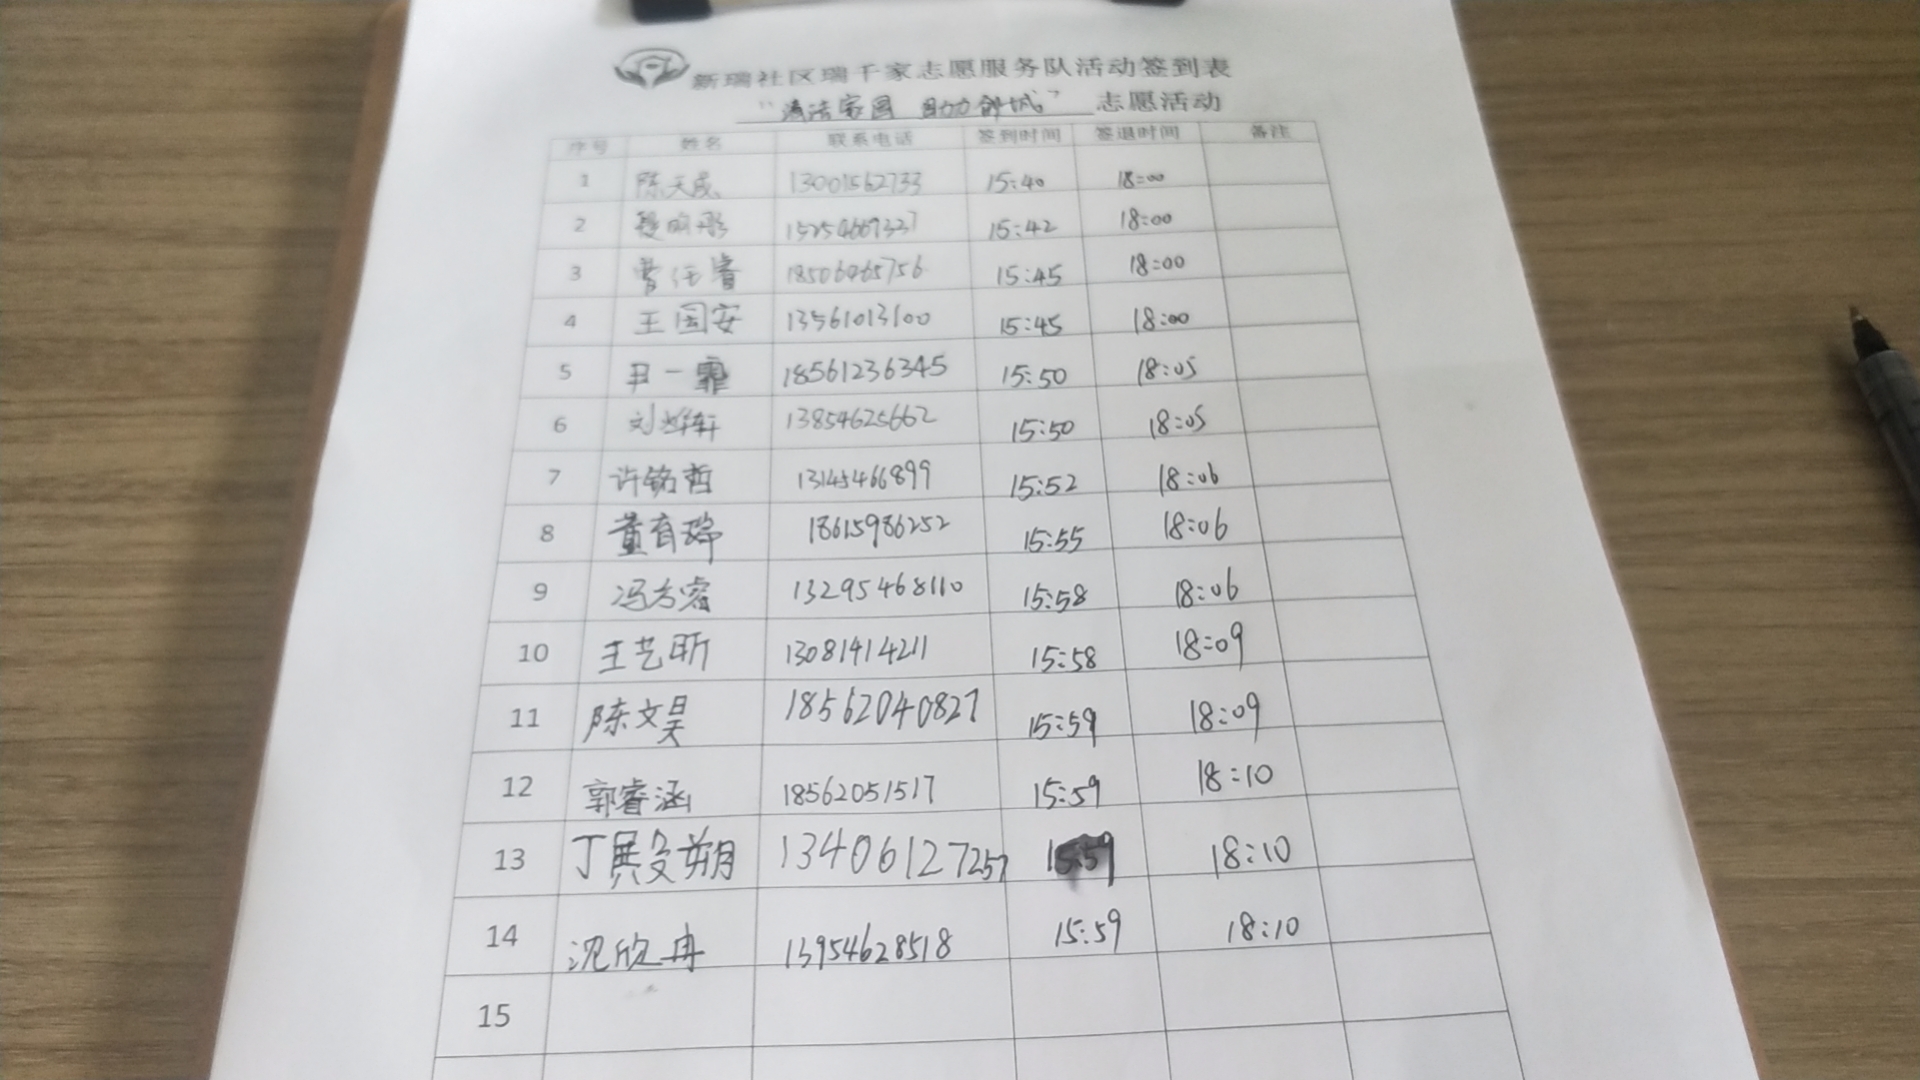 新瑞社区瑞千家志愿服务队活动签到表
“清洁家园 助力创城” 志愿活动
序号 姓名 联系电话 签到时间 签退时间 备注
1 陈天成 13001562733 15:40 18:00
2 15254667327 15:42 18:00
3 曾任睿 18506465756 15:45 18:00
4 王国安 13561013100 15:45 18:00
5 尹一霏 18561236345 15:50 18:05
6 刘烨轩 13854625662 15:50 18:05
7 许铭哲 13145466899 15:52 18:06
8 董有 18615986252 15:55 18:06
9 冯方睿 13295468110 15:58 18:06
10 王艺昕 13081414211 15:58 18:09
11 陈文昊 18562040827 15:59 18:09
12 郭睿涵 18562051517 15:59 18:10
13 丁 朔 13406127257 15:59 18:10
14 沈欣冉 13954628518 15:59 18:10
15